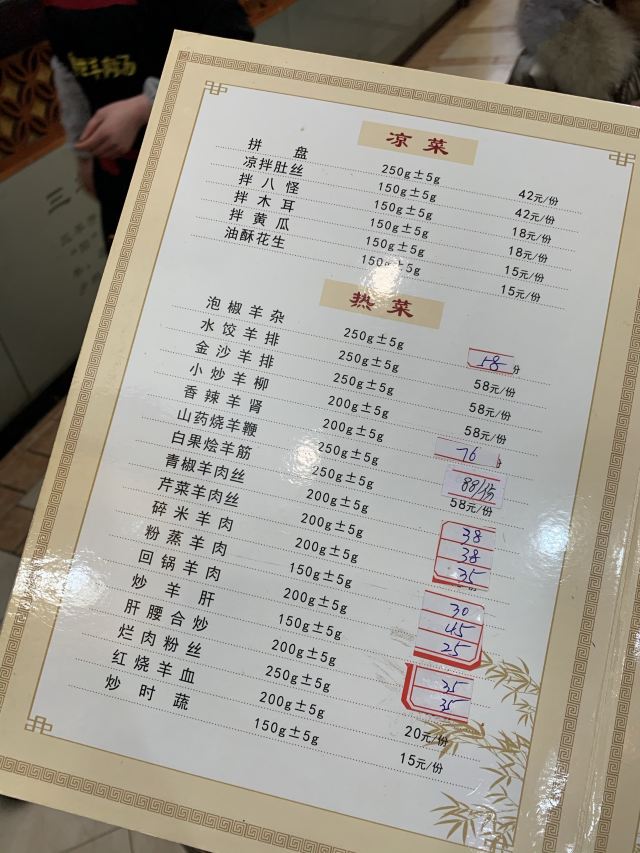 羊肉汤
凉菜
拼盘 250g±5g 42元/份
凉拌肚丝 150g±5g 42元/份
拌八怪 150g±5g 18元/份
拌木耳 150g±5g 18元/份
拌黄瓜 150g±5g 15元/份
油酥花生 150g±5g 15元/份
热菜
泡椒羊杂 250g±5g 58 份
水饺羊排 250g±5g 58元/份
金沙羊排 250g±5g 58元/份
小炒羊柳 200g±5g 58元/份
香辣羊肾 200g±5g 76
山药烧羊鞭 250g±5g 88/
白果烩羊筋 250g±5g 58元/份
青椒羊肉丝 200g±5g 38
芹菜羊肉丝 200g±5g 38
碎米羊肉 200g±5g 35
粉蒸羊肉 150g±5g 30
回锅羊肉 200g±5g 45
炒羊肝 150g±5g 25
肝腰合炒 200g±5g 35
烂肉粉丝 250g±5g 35
红烧羊血 200g±5g 20元/份
炒时蔬 150g±5g 15元/份